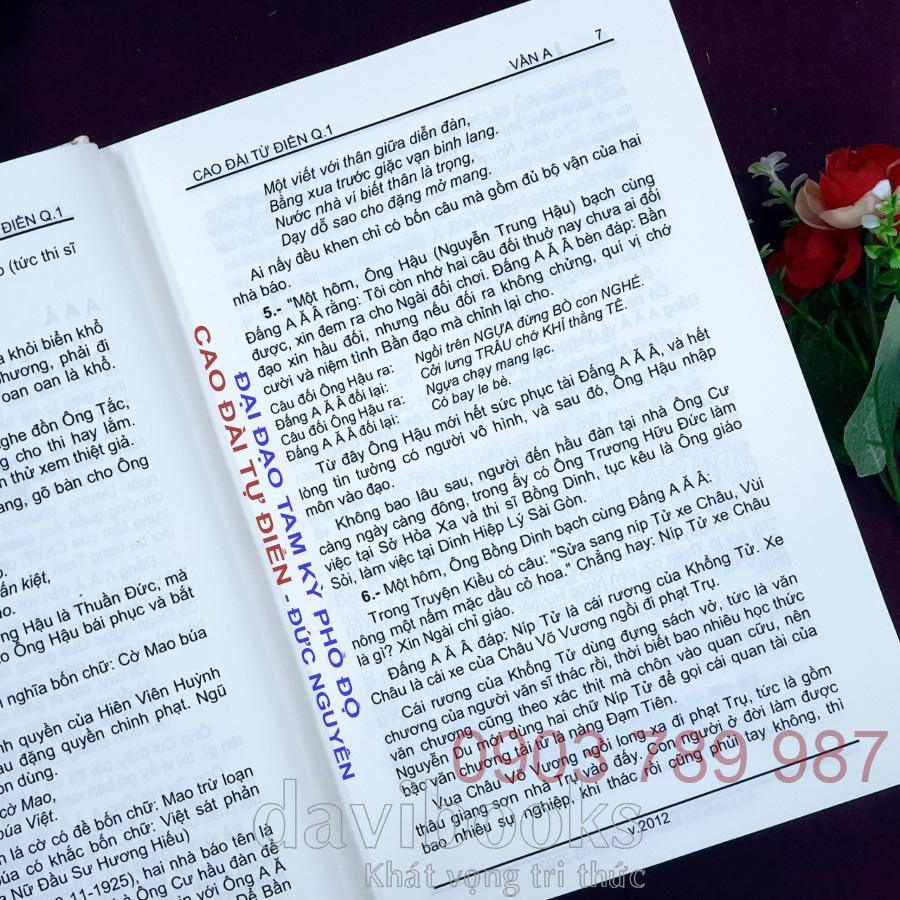 ĐIỂN Q.1
o (tức thi sĩ
a khởi biển khổ
hương, phải đi
oan oan là khổ.
ghe đồn Ông Tắc,
g cho thi hay lắm.
n thử xem thiệt giả.
ang, gõ bàn cho Ông
ắn kiệt,
ao.
ng Hậu là Thuần Đức, mà
o Ông Hậu bái phục và bắt
i nghĩa bốn chữ: Cờ Mao búa
nh quyền của Hiên Viên Huỳnh
âu đặng quyền chinh phạt. Ngũ
òn dùng.
cờ Mao,
búa Việt.
n lá cờ có đề bốn chữ: Mao trừ loạn
búa có khắc bốn chữ: Việt sát phản
à Nữ Đầu Sư Hương Hiếu)
-11-1925), hai nhà báo tên là
à Ông Cư hầu đàn để
n với Ông A Ă
Để Bần
CAO ĐÀI TỪ ĐIỂN Q.1 VẦN A 7
Một viết với thân giữa diễn đàn,
Bằng xua trước giặc vạn binh lang.
Nước nhà ví biết thân là trọng,
Dạy dỗ sao cho đặng mở mang.
Ai nấy đều khen chỉ có bốn câu mà gồm đủ bộ vận của hai
nhà báo.
5.- "Một hôm, Ông Hậu (Nguyễn Trung Hậu) bạch cùng
Đấng A Ă Â rằng: Tôi còn nhớ hai câu đối thuở nay chưa ai đối
được, xin đem ra cho Ngài đối chơi. Đấng A Ă Â bèn đáp: Bần
đạo xin hầu đối, nhưng nếu đối ra không chừng, quí vị chớ
cười và niệm tình Bần đạo mà chỉnh lại cho.
Câu đối Ông Hậu ra: Ngồi trên NGỰA đừng BÒ con NGHÉ.
Đấng A Ă Â đối lại: Cỡi lưng TRÂU chớ KHỈ thằng TÊ.
Câu đối Ông Hậu ra: Ngựa chạy mang lạc.
Đấng A Ă Â đối lại: Cò bay le bè.
Từ đây Ông Hậu mới hết sức phục tài Đấng A Ă Â, và hết
lòng tin tưởng có người vô hình, và sau đó, Ông Hậu nhập
môn vào đạo.
Không bao lâu sau, người đến hầu đàn tại nhà Ông Cư
càng ngày càng đông, trong ấy có Ông Trương Hữu Đức làm
việc tại Sở Hỏa Xa và thi sĩ Bồng Dinh, tục kêu là Ông giáo
Sỏi, làm việc tại Dinh Hiệp Lý Sài Gòn.
6.- Một hôm, Ông Bồng Dinh bạch cùng Đấng A Ă Â:
Trong Truyện Kiều có câu: "Sửa sang níp Tử xe Châu, Vùi
nông một nấm mặc dầu cỏ hoa." Chẳng hay: Níp Tử xe Châu
là gì? Xin Ngài chỉ giáo.
Đấng A Ă Â đáp: Níp Tử là cái rương của Khổng Tử. Xe
Châu là cái xe của Châu Võ Vương ngồi đi phạt Trụ.
Cái rương của Khổng Tử dùng đựng sách vở, tức là văn
chương của người văn sĩ thác rồi, thời biết bao nhiêu học thức
văn chương cũng theo xác thịt mà chôn vào quan cữu, nên
Nguyễn Du mới dùng hai chữ Níp Tử để gọi cái quan tài của
bậc văn chương tài tử là nàng Đạm Tiên.
Vua Châu Võ Vương ngồi long xa đi phạt Trụ, tức là gồm
thâu giang sơn nhà Trụ vào đấy. Con người ở đời làm được
bao nhiêu sự nghiệp, khi thác rồi cũng phủi tay không, thì
v.2012
ĐẠI ĐẠO TAM KỲ PHỔ ĐỘ
CAO ĐÀI TỰ ĐIỂN - ĐỨC NGUYÊN
0903 789 987
davibooks
Khát vọng tri thức